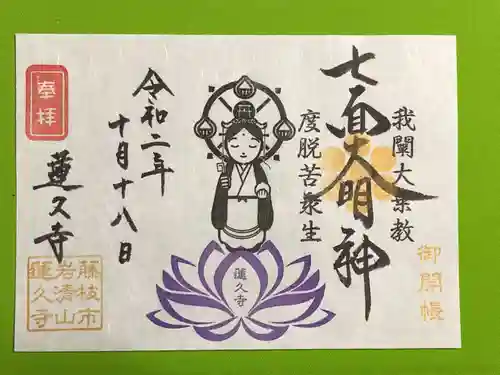 我闡大乗教
七面大明神
度脱苦衆生
御開帳
蓮久寺
令和二年
十月十八日
奉拝
蓮久寺
藤枝市
岩清山
蓮久寺